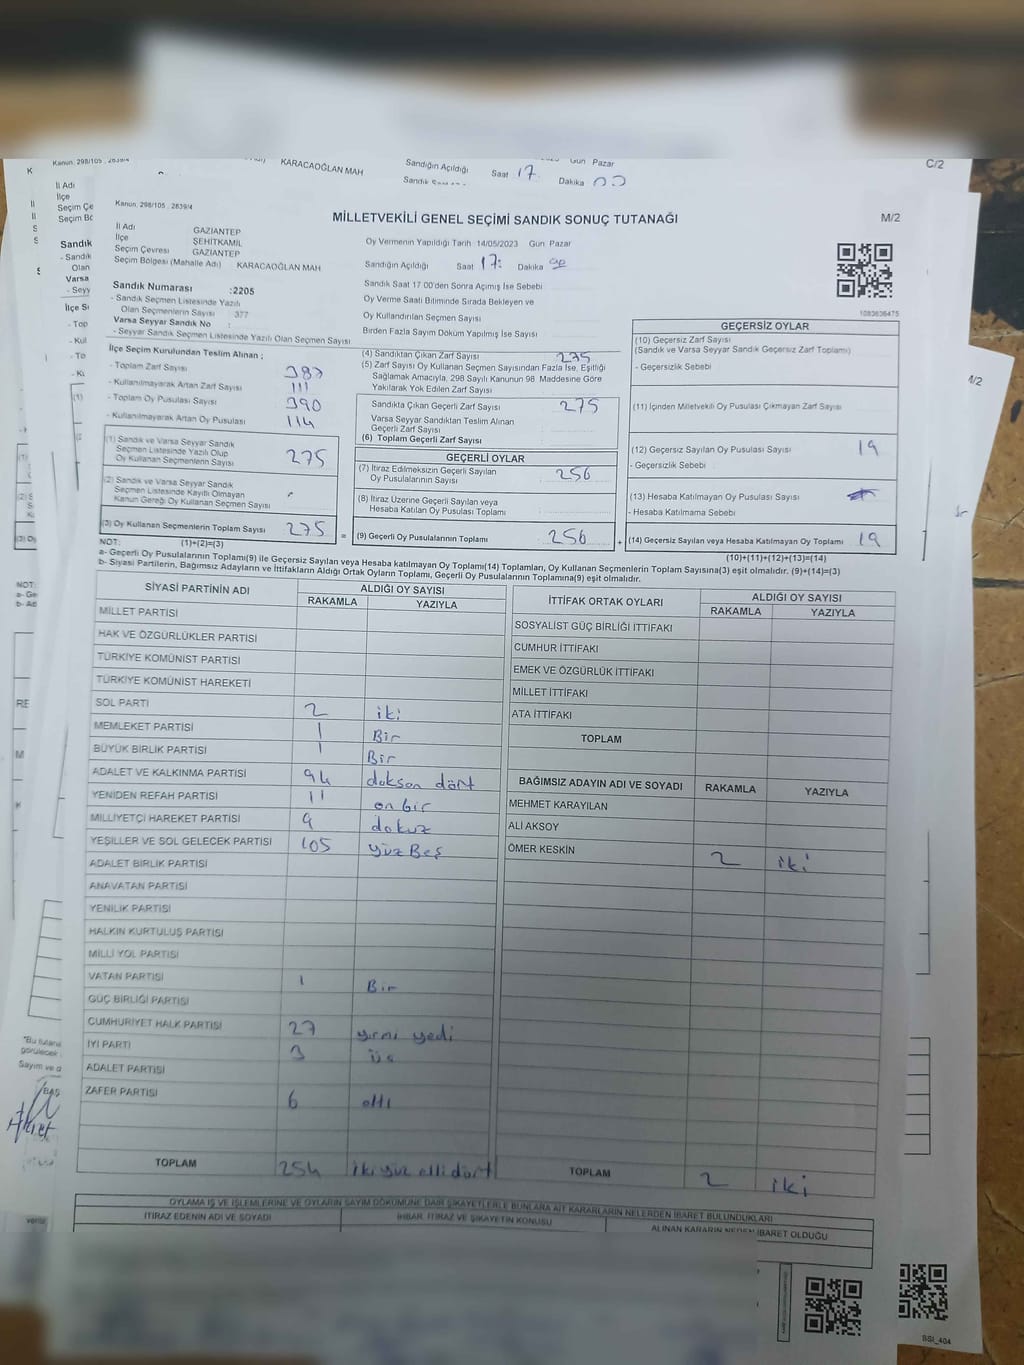 Kanun, 298/105 , 2839/4
KARACAOĞLAN MAH
Sandığın Açıldığı Saat 17. Dakika
Gün Pazar
C/2
Kanun, 298/105 , 2839/4
MİLLETVEKİLİ GENEL SEÇİMİ SANDIK SONUÇ TUTANAĞI
M/2
İl Adı GAZİANTEP
İlçe ŞEHİTKAMİL
Seçim Çevresi GAZİANTEP
Seçim Bölgesi (Mahalle Adı) KARACAOĞLAN MAH
Sandık Numarası :2205
- Sandık Seçmen Listesinde Yazılı
Olan Seçmenlerin Sayısı 377
Varsa Seyyar Sandık No :
- Seyyar Sandık Seçmen Listesinde Yazılı Olan Seçmen Sayısı
Oy Vermenin Yapıldığı Tarih 14/05/2023 Gün Pazar
Sandığın Açıldığı Saat 17: Dakika
Sandık Saat 17:00'den Sonra Açımış İse Sebebi
Oy Verme Saati Bitiminde Sırada Bekleyen ve
Oy Kullandırılan Seçmen Sayısı
Birden Fazla Sayım Döküm Yapılmış İse Sayısı
1083636475
İlçe Seçim Kurulundan Teslim Alınan ;
- Toplam Zarf Sayısı 387
- Kullanılmayarak Artan Zarf Sayısı 111
- Toplam Oy Pusulası Sayısı 390
- Kullanılmayarak Artan Oy Pusulası 114
(1) Sandık ve Varsa Seyyar Sandık
Seçmen Listesinde Yazılı Olup
Oy Kullanan Seçmenlerin Sayısı 275
(2) Sandık ve Varsa Seyyar Sandık
Seçmen Listesinde Kayıtlı Olmayan
Kanun Gereği Oy Kullanan Seçmen Sayısı
(3) Oy Kullanan Seçmenlerin Toplam Sayısı 275
(4) Sandıktan Çıkan Zarf Sayısı 275
(5) Zarf Sayısı Oy Kullanan Seçmen Sayısından Fazla İse, Eşitliği
Sağlamak Amacıyla, 298 Sayılı Kanunun 98 Maddesine Göre
Yakılarak Yok Edilen Zarf Sayısı
Sandıkta Çıkan Geçerli Zarf Sayısı 275
Varsa Seyyar Sandıktan Teslim Alınan
Geçerli Zarf Sayısı
(6) Toplam Geçerli Zarf Sayısı
GEÇERLİ OYLAR
(7) İtiraz Edilmeksizin Geçerli Sayılan
Oy Pusulalarının Sayısı 256
(8) İtiraz Üzerine Geçerli Sayılan veya
Hesaba Katılan Oy Pusulası Toplamı
= (9) Geçerli Oy Pusulalarının Toplamı 256 +
GEÇERSİZ OYLAR
(10) Geçersiz Zarf Sayısı
(Sandık ve Varsa Seyyar Sandık Geçersiz Zarf Toplamı)
- Geçersizlik Sebebi
(11) İçinden Milletvekili Oy Pusulası Çıkmayan Zarf Sayısı
(12) Geçersiz Sayılan Oy Pusulası Sayısı 19
- Geçersizlik Sebebi
(13) Hesaba Katılmayan Oy Pusulası Sayısı
- Hesaba Katılmama Sebebi
(14) Geçersiz Sayılan veya Hesaba Katılmayan Oy Toplamı 19
NOT: (1)+(2)=(3)
(10)+(11)+(12)+(13)=(14)
a- Geçerli Oy Pusulalarının Toplamı(9) ile Geçersiz Sayılan veya Hesaba katılmayan Oy Toplamı(14) Toplamları, Oy Kullanan Seçmenlerin Toplam Sayısına(3) eşit olmalıdır. (9)+(14)=(3)
b- Siyasi Partilerin, Bağımsız Adayların ve İttifakların Aldığı Ortak Oyların Toplamı, Geçerli Oy Pusulalarının Toplamına(9) eşit olmalıdır.
SİYASİ PARTİNİN ADI
ALDIĞI OY SAYISI
RAKAMLA YAZIYLA
MİLLET PARTİSİ
HAK VE ÖZGÜRLÜKLER PARTİSİ
TÜRKİYE KOMÜNİST PARTİSİ
TÜRKİYE KOMÜNİST HAREKETİ
SOL PARTİ 2 iki
MEMLEKET PARTİSİ 1 Bir
BÜYÜK BİRLİK PARTİSİ 1 Bir
ADALET VE KALKINMA PARTİSİ 94 doksan dört
YENİDEN REFAH PARTİSİ 11 on bir
MİLLİYETÇİ HAREKET PARTİSİ 9 dokuz
YEŞİLLER VE SOL GELECEK PARTİSİ 105 yüz Beş
ADALET BİRLİK PARTİSİ
ANAVATAN PARTİSİ
YENİLİK PARTİSİ
HALKIN KURTULUŞ PARTİSİ
MİLLİ YOL PARTİSİ
VATAN PARTİSİ 1 Bir
GÜÇ BİRLİĞİ PARTİSİ
CUMHURİYET HALK PARTİSİ 27 yirmi yedi
İYİ PARTİ 3 üç
ADALET PARTİSİ
ZAFER PARTİSİ 6 altı
TOPLAM 254 iki yüz elli dört
İTTİFAK ORTAK OYLARI
ALDIĞI OY SAYISI
RAKAMLA YAZIYLA
SOSYALİST GÜÇ BİRLİĞİ İTTİFAKI
CUMHUR İTTİFAKI
EMEK VE ÖZGÜRLÜK İTTİFAKI
MİLLET İTTİFAKI
ATA İTTİFAKI
TOPLAM
BAĞIMSIZ ADAYIN ADI VE SOYADI RAKAMLA YAZIYLA
MEHMET KARAYILAN
ALİ AKSOY
ÖMER KESKİN 2 iki
TOPLAM 2 iki
OYLAMA İŞ VE İŞLEMLERİNE VE OYLARIN SAYIM DÖKÜMÜNE DAİR ŞİKAYETLERLE BUNLARA AİT KARARLARIN NELERDEN İBARET BULUNDUKLARI
İTİRAZ EDENİN ADI VE SOYADI
İHBAR, İTİRAZ VE ŞİKAYETİN KONUSU
ALINAN KARARIN NEDEN İBARET OLDUĞU
SSI_404